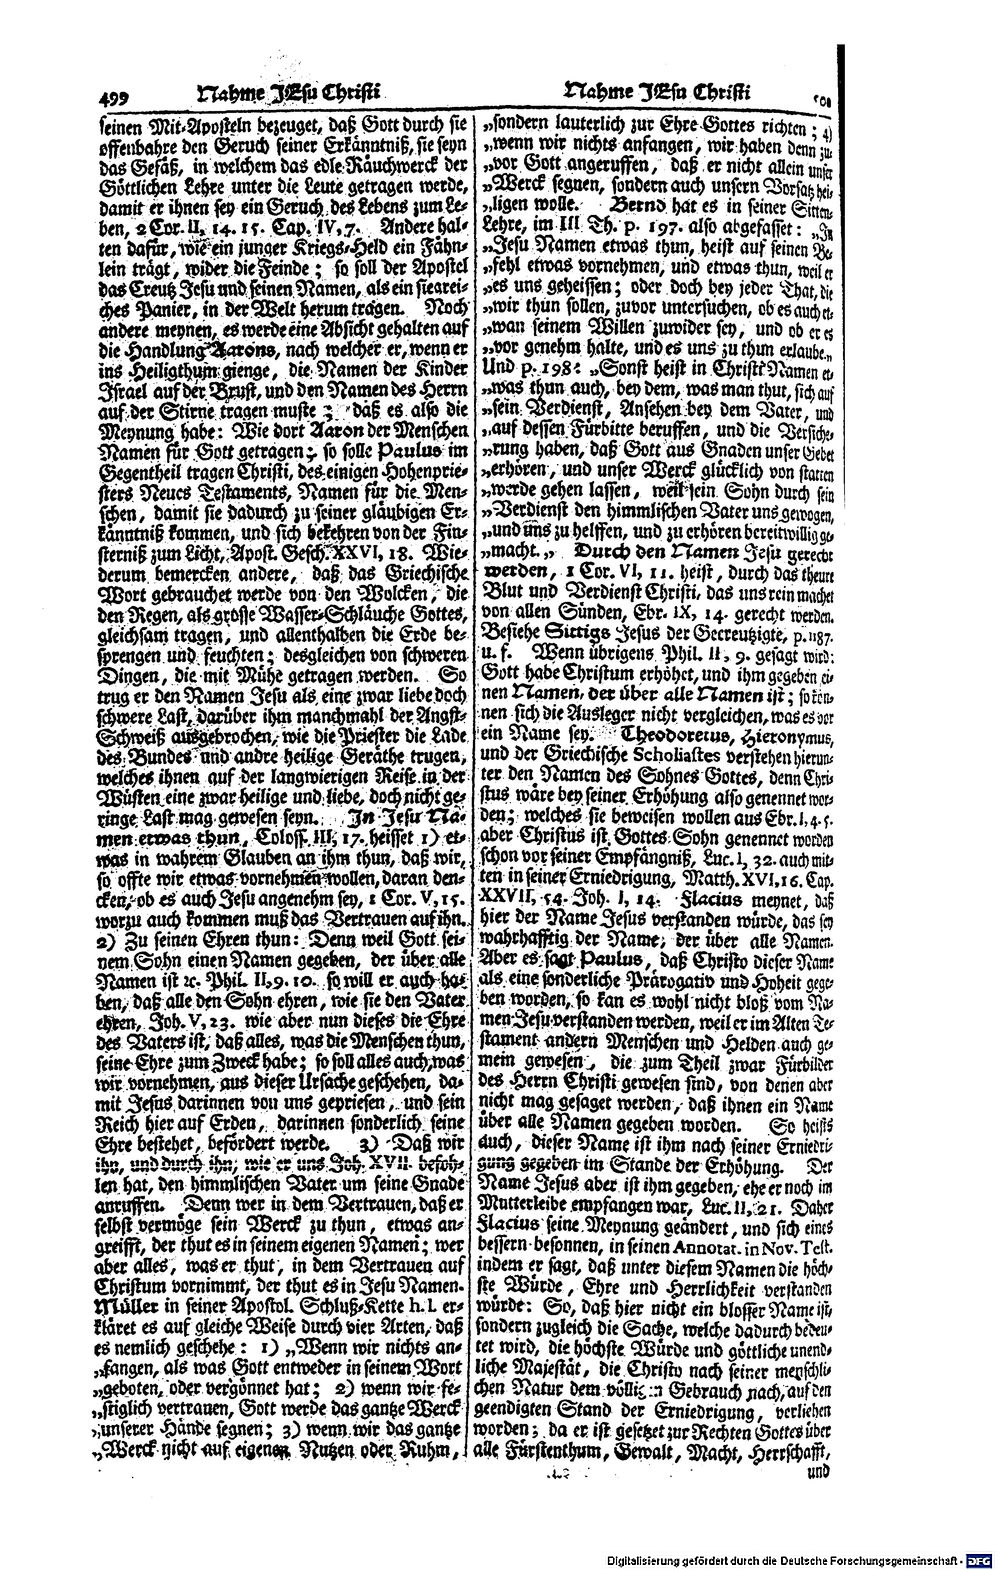 499 Nahme JEsu Christi
Nahme JEsu Christi 500
seinen Mit-Aposteln bezeuget, daß Gott durch sie
offenbahre den Geruch seiner Erkänntniß, sie seyn
das Gefäß, in welchem das edle Räuchwerck der
Göttlichen Lehre unter die Leute getragen werde,
damit er ihnen sey ein Geruch des Lebens zum Le-
ben, 2 Cor. II, 14. 15. Cap. IV, 7. Andere hal-
ten dafür, wie ein junger Kriegs-Held ein Fähn-
lein trägt, wider die Feinde; so soll der Apostel
das Creutz Jesu und seinen Namen, als ein siearei-
ches Panier, in der Welt herum tragen. Noch
andere meynen, es werde eine Absicht gehalten auf
die Handlung Aarons, nach welcher er, wenn er
ins Heiligthum gienge, die Namen der Kinder
Israel auf der Brust, und den Namen des Herrn
auf der Stirne tragen muste; daß es also die
Meynung habe: Wie dort Aaron der Menschen
Namen für Gott getragen; so solle Paulus im
Gegentheil tragen Christi, des einigen Hohenprie-
sters Neues Testaments, Namen für die Men-
schen, damit sie dadurch zu seiner gläubigen Er-
känntniß kommen, und sich bekehren von der Fin-
sterniß zum Licht, Apost. Gesch. XXVI, 18. Wie-
derum bemercken andere, daß das Griechische
Wort gebrauchet werde von den Wolcken, die
den Regen, als grosse Wasser-Schläuche Gottes,
gleichsam tragen, und allenthalben die Erde be-
sprengen und feuchten; desgleichen von schweren
Dingen, die mit Mühe getragen werden. So
trug er den Namen Jesu als eine zwar liebe doch
schwere Last, darüber ihm manchmahl der Angst-
Schweiß ausgebrochen, wie die Priester die Lade
des Bundes und andre heilige Geräthe trugen,
welches ihnen auf der langwierigen Reise in der
Wüsten eine zwar heilige und liebe, doch nicht ge-
ringe Last mag gewesen seyn. In Jesu Na-
men etwas thun, Coloss. III, 17. heisset 1) et-
was in wahrem Glauben an ihm thun, daß wir,
so offte wir etwas vornehmen wollen, daran den-
cken, ob es auch Jesu angenehm sey, 1 Cor. V, 15.
worzu auch kommen muß das Vertrauen auf ihn.
2) Zu seinen Ehren thun: Denn weil Gott sei-
nem Sohn einen Namen gegeben, der über alle
Namen ist ꝛc. Phil. II, 9. 10. so will er auch ha-
ben, daß alle den Sohn ehren, wie sie den Vater
ehren, Joh. V, 23. wie aber nun dieses die Ehre
des Vaters ist, daß alles, was die Menschen thun,
seine Ehre zum Zweck habe; so soll alles auch, was
wir vornehmen, aus dieser Ursache geschehen, da-
mit Jesus darinnen von uns gepriesen, und sein
Reich hier auf Erden, darinnen sonderlich seine
Ehre bestehet, befördert werde. 3) Daß wir
ihn, und durch ihn, wie er uns Joh. XVII. befoh-
len hat, den himmlischen Vater um seine Gnade
anruffen. Denn wer in dem Vertrauen, daß er
selbst vermöge sein Werck zu thun, etwas an-
greifft, der thut es in seinem eigenen Namen; wer
aber alles, was er thut, in dem Vertrauen auf
Christum vornimmt, der thut es in Jesu Namen.
Müller in seiner Apostol. Schluß-Kette h. l. er-
kläret es auf gleiche Weise durch vier Arten, daß
es nemlich geschehe: 1) „Wenn wir nichts an-
„fangen, als was Gott entweder in seinem Wort
„geboten, oder vergönnet hat; 2) wenn wir fe-
„stiglich vertrauen, Gott werde das gantze Werck
„unserer Hände segnen; 3) wenn wir das gantze
„Werck nicht auf eigenen Nutzen oder Ruhm,
„sondern lauterlich zur Ehre Gottes richten; 4)
„wenn wir nichts anfangen, wir haben denn zu-
„vor Gott angeruffen, daß er nicht allein unser
„Werck segnen, sondern auch unsern Vorsatz hei-
„ligen wolle. Bernd hat es in seiner Sitten-
Lehre, im III Th. p. 197. also abgefasset: „In
„Jesu Namen etwas thun, heist auf seinen Be-
„fehl etwas vornehmen, und etwas thun, weil er
„es uns geheissen; oder doch bey jeder That, die
„wir thun sollen, zuvor untersuchen, ob es auch et-
„wan seinem Willen zuwider sey, und ob er es
„vor genehm halte, und es uns zu thun erlaube.„
Und p. 198: „Sonst heist in Christi Namen et-
„was thun auch, bey dem, was man thut, sich auf
„sein Verdienst, Ansehen bey dem Vater, und
„auf dessen Fürbitte beruffen, und die Versiche-
„rung haben, daß Gott aus Gnaden unser Gebet
„erhören, und unser Werck glücklich von statten
„werde gehen lassen, weil sein Sohn durch sein
„Verdienst den himmlischen Vater uns gewogen,
„und uns zu helffen, und zu erhören bereitwillig ge-
„macht.„ Durch den Namen Jesu gerecht
werden, 1 Cor. VI, 11. heist, durch das theure
Blut und Verdienst Christi, das uns rein machet
von allen Sünden, Ebr. IX, 14. gerecht werden.
Besiehe Sittigs Jesus der Gecreutzigte, p. 1187.
u. f. Wenn übrigens Phil. II, 9. gesagt wird:
Gott habe Christum erhöhet, und ihm gegeben ei-
nen Namen, der über alle Namen ist; so kön-
nen sich die Ausleger nicht vergleichen, was es vor
ein Name sey. Theodoretus, Hieronymus,
und der Griechische Scholiastes verstehen hierun-
ter den Namen des Sohnes Gottes, denn Chri-
stus wäre bey seiner Erhöhung also genennet wor-
den; welches sie beweisen wollen aus Ebr. I, 4. 5.
aber Christus ist Gottes Sohn genennet worden
schon vor seiner Empfängniß, Luc. I, 32. auch mit-
ten in seiner Erniedrigung, Matth. XVI, 16. Cap.
XXVII, 54. Joh. I, 14. Flacius meynet, daß
hier der Name Jesus verstanden würde, das sey
wahrhafftig der Name, der über alle Namen.
Aber es sagt Paulus, daß Christo dieser Name
als eine sonderliche Prärogativ und Hoheit gege-
ben worden, so kan es wohl nicht bloß vom Na-
men Jesu verstanden werden, weil er im Alten Te-
stament andern Menschen und Helden auch ge-
mein gewesen, die zum Theil zwar Fürbilder
des Herrn Christi gewesen sind, von denen aber
nicht mag gesaget werden, daß ihnen ein Name
über alle Namen gegeben worden. So heists
auch, dieser Name ist ihm nach seiner Erniedri-
gung gegeben im Stande der Erhöhung. Der
Name Jesus aber ist ihm gegeben, ehe er noch im
Mutterleibe empfangen war, Luc. II, 21. Daher
Flacius seine Meynung geändert, und sich eines
bessern besonnen, in seinen Annotat. in Nov. Test.
indem er sagt, daß unter diesem Namen die höch-
ste Würde, Ehre und Herrlichkeit verstanden
würde: So, daß hier nicht ein blosser Name ist,
sondern zugleich die Sache, welche dadurch bedeu-
tet wird, die höchste Würde und göttliche unend-
liche Majestät, die Christo nach seiner menschli-
chen Natur dem völligen Gebrauch nach, auf den
geendigten Stand der Erniedrigung, verliehen
worden; da er ist gesetzet zur Rechten Gottes über
alle Fürstenthum, Gewalt, Macht, Herrschafft,
und
Digitalisierung gefördert durch die Deutsche Forschungsgemeinschaft - DFG